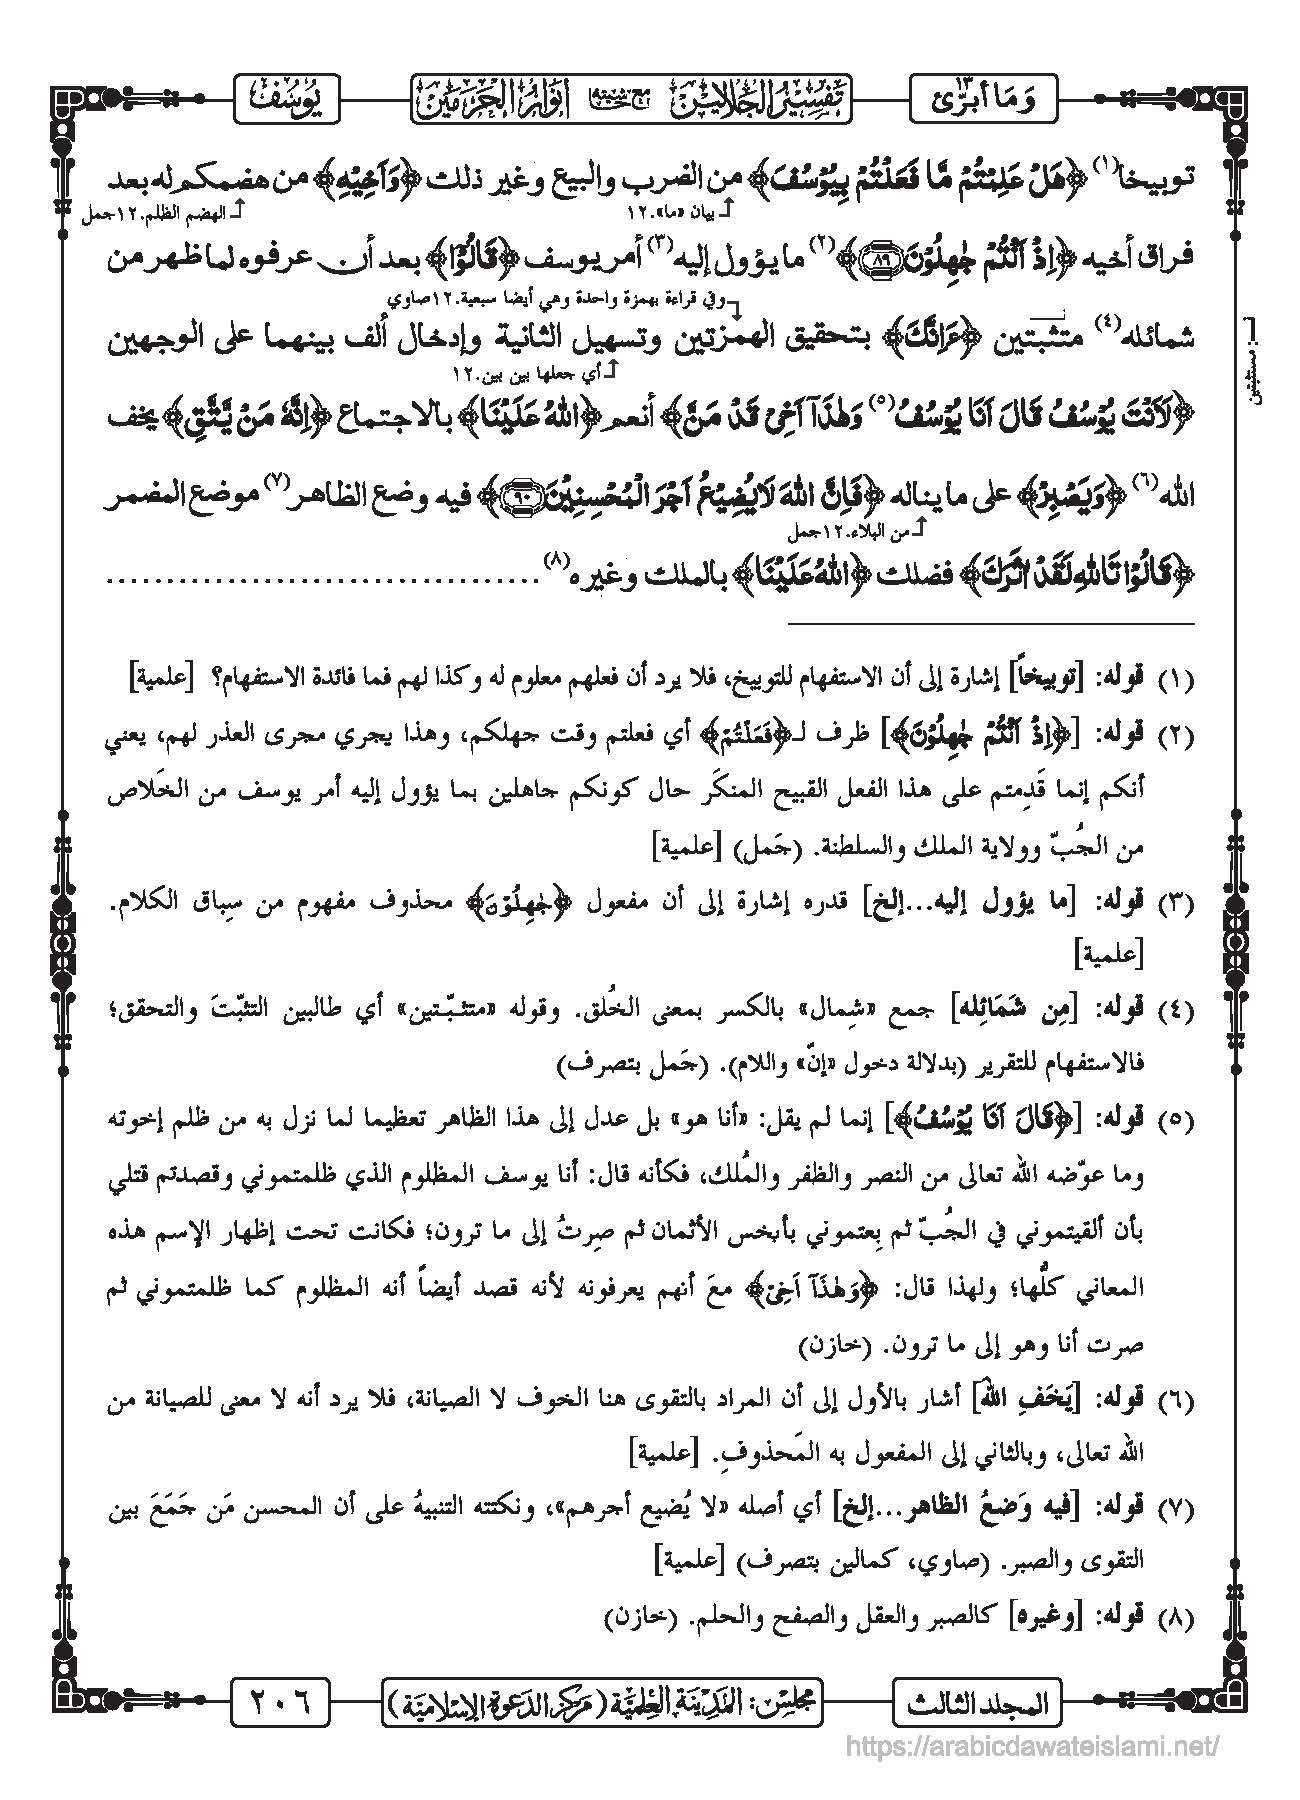 وَمَا أُبَرِّئُ ١٣
تفسير الجلالين مع حاشية أنوار الحرمين
يُوسُف
توبيخا(١) ﴿هَلْ عَلِمْتُمْ مَّا فَعَلْتُمْ بِيُوْسُفَ﴾ من الضرب والبيع وغير ذلك ﴿وَاَخِيْهِ﴾ من هضمكم له بعد
بيان «ما».١٢
الهضم الظلم.١٢جمل
فراق أخيه ﴿اِذْ اَنْتُمْ جٰهِلُوْنَ ٨٩﴾(٢) ما يؤول إليه(٣) أمر يوسف ﴿قَالُوْٓا﴾ بعد أن عرفوه لما ظهر من
وفي قراءة بهمزة واحدة وهي أيضا سبعية.١٢صاوي
شمائله(٤) متثبتين ﴿ءَاِنَّكَ﴾ بتحقيق الهمزتين وتسهيل الثانية وإدخال ألف بينهما على الوجهين
أ: مستثبتين
أي جعلها بين بين.١٢
﴿لَاَنْتَ يُوْسُفُ قَالَ اَنَا يُوْسُفُ(٥) وَهٰذَآ اَخِيْ قَدْ مَنَّ﴾ أنعم ﴿اللهُ عَلَيْنَا﴾ بالاجتماع ﴿اِنَّهٗ مَنْ يَّتَّقِ﴾ يخف
الله(٦) ﴿وَيَصْبِرْ﴾ على ما يناله ﴿فَاِنَّ اللهَ لَا يُضِيْعُ اَجْرَ الْمُحْسِنِيْنَ ٩٠﴾ فيه وضع الظاهر(٧) موضع المضمر
من البلاء.١٢جمل
﴿قَالُوْا تَاللهِ لَقَدْ اٰثَرَكَ﴾ فضلك ﴿اللهُ عَلَيْنَا﴾ بالملك وغيره(٨) ....................................
(١) قوله: [توبيخاً] إشارة إلى أن الاستفهام للتوبيخ، فلا يرد أن فعلهم معلوم له وكذا لهم فما فائدة الاستفهام؟ [علمية]
(٢) قوله: [﴿اِذْ اَنْتُمْ جٰهِلُوْنَ﴾] ظرف لـ﴿فَعَلْتُمْ﴾ أي فعلتم وقت جهلكم، وهذا يجري مجرى العذر لهم، يعني
أنكم إنما قَدِمتم على هذا الفعل القبيح المنكَر حال كونكم جاهلين بما يؤول إليه أمر يوسف من الخَلاص
من الجُبّ وولاية الملك والسلطنة. (جَمل) [علمية]
(٣) قوله: [ما يؤول إليه...إلخ] قدره إشارة إلى أن مفعول ﴿جٰهِلُوْنَ﴾ محذوف مفهوم من سِباق الكلام.
[علمية]
(٤) قوله: [مِن شَمَائِله] جمع «شِمال» بالكسر بمعنى الخُلق. وقوله «متثبّتين» أي طالبين التثبّتَ والتحقق؛
فالاستفهام للتقرير (بدلالة دخول «إنّ» واللام). (جَمل بتصرف)
(٥) قوله: [﴿قَالَ اَنَا يُوْسُفُ﴾] إنما لم يقل: «أنا هو» بل عدل إلى هذا الظاهر تعظيما لما نزل به من ظلم إخوته
وما عوّضه الله تعالى من النصر والظفر والمُلك، فكأنه قال: أنا يوسف المظلوم الذي ظلمتموني وقصدتم قتلي
بأن ألقيتموني في الجُبّ ثم بِعتموني بأبخس الأثمان ثم صِرتُ إلى ما ترون؛ فكانت تحت إظهار الإسم هذه
المعاني كلُّها؛ ولهذا قال: ﴿وَهٰذَآ اَخِيْ﴾ معَ أنهم يعرفونه لأنه قصد أيضاً أنه المظلوم كما ظلمتموني ثم
صرت أنا وهو إلى ما ترون. (خازن)
(٦) قوله: [يَخَفِ اللهَ] أشار بالأول إلى أن المراد بالتقوى هنا الخوف لا الصيانة، فلا يرد أنه لا معنى للصيانة من
الله تعالى، وبالثاني إلى المفعول به المَحذوفِ. [علمية]
(٧) قوله: [فيه وَضعُ الظاهر...إلخ] أي أصله «لا يُضيع أجرهم»، ونكتته التنبيهُ على أن المحسن مَن جَمَعَ بين
التقوى والصبر. (صاوي، كمالين بتصرف) [علمية]
(٨) قوله: [وغيره] كالصبر والعقل والصفح والحلم. (خازن)
المجلد الثالث
مجلس: المدينة العلمية (مركز الدعوة الإسلامية)
٢٠٦
https://arabicdawateislami.net/